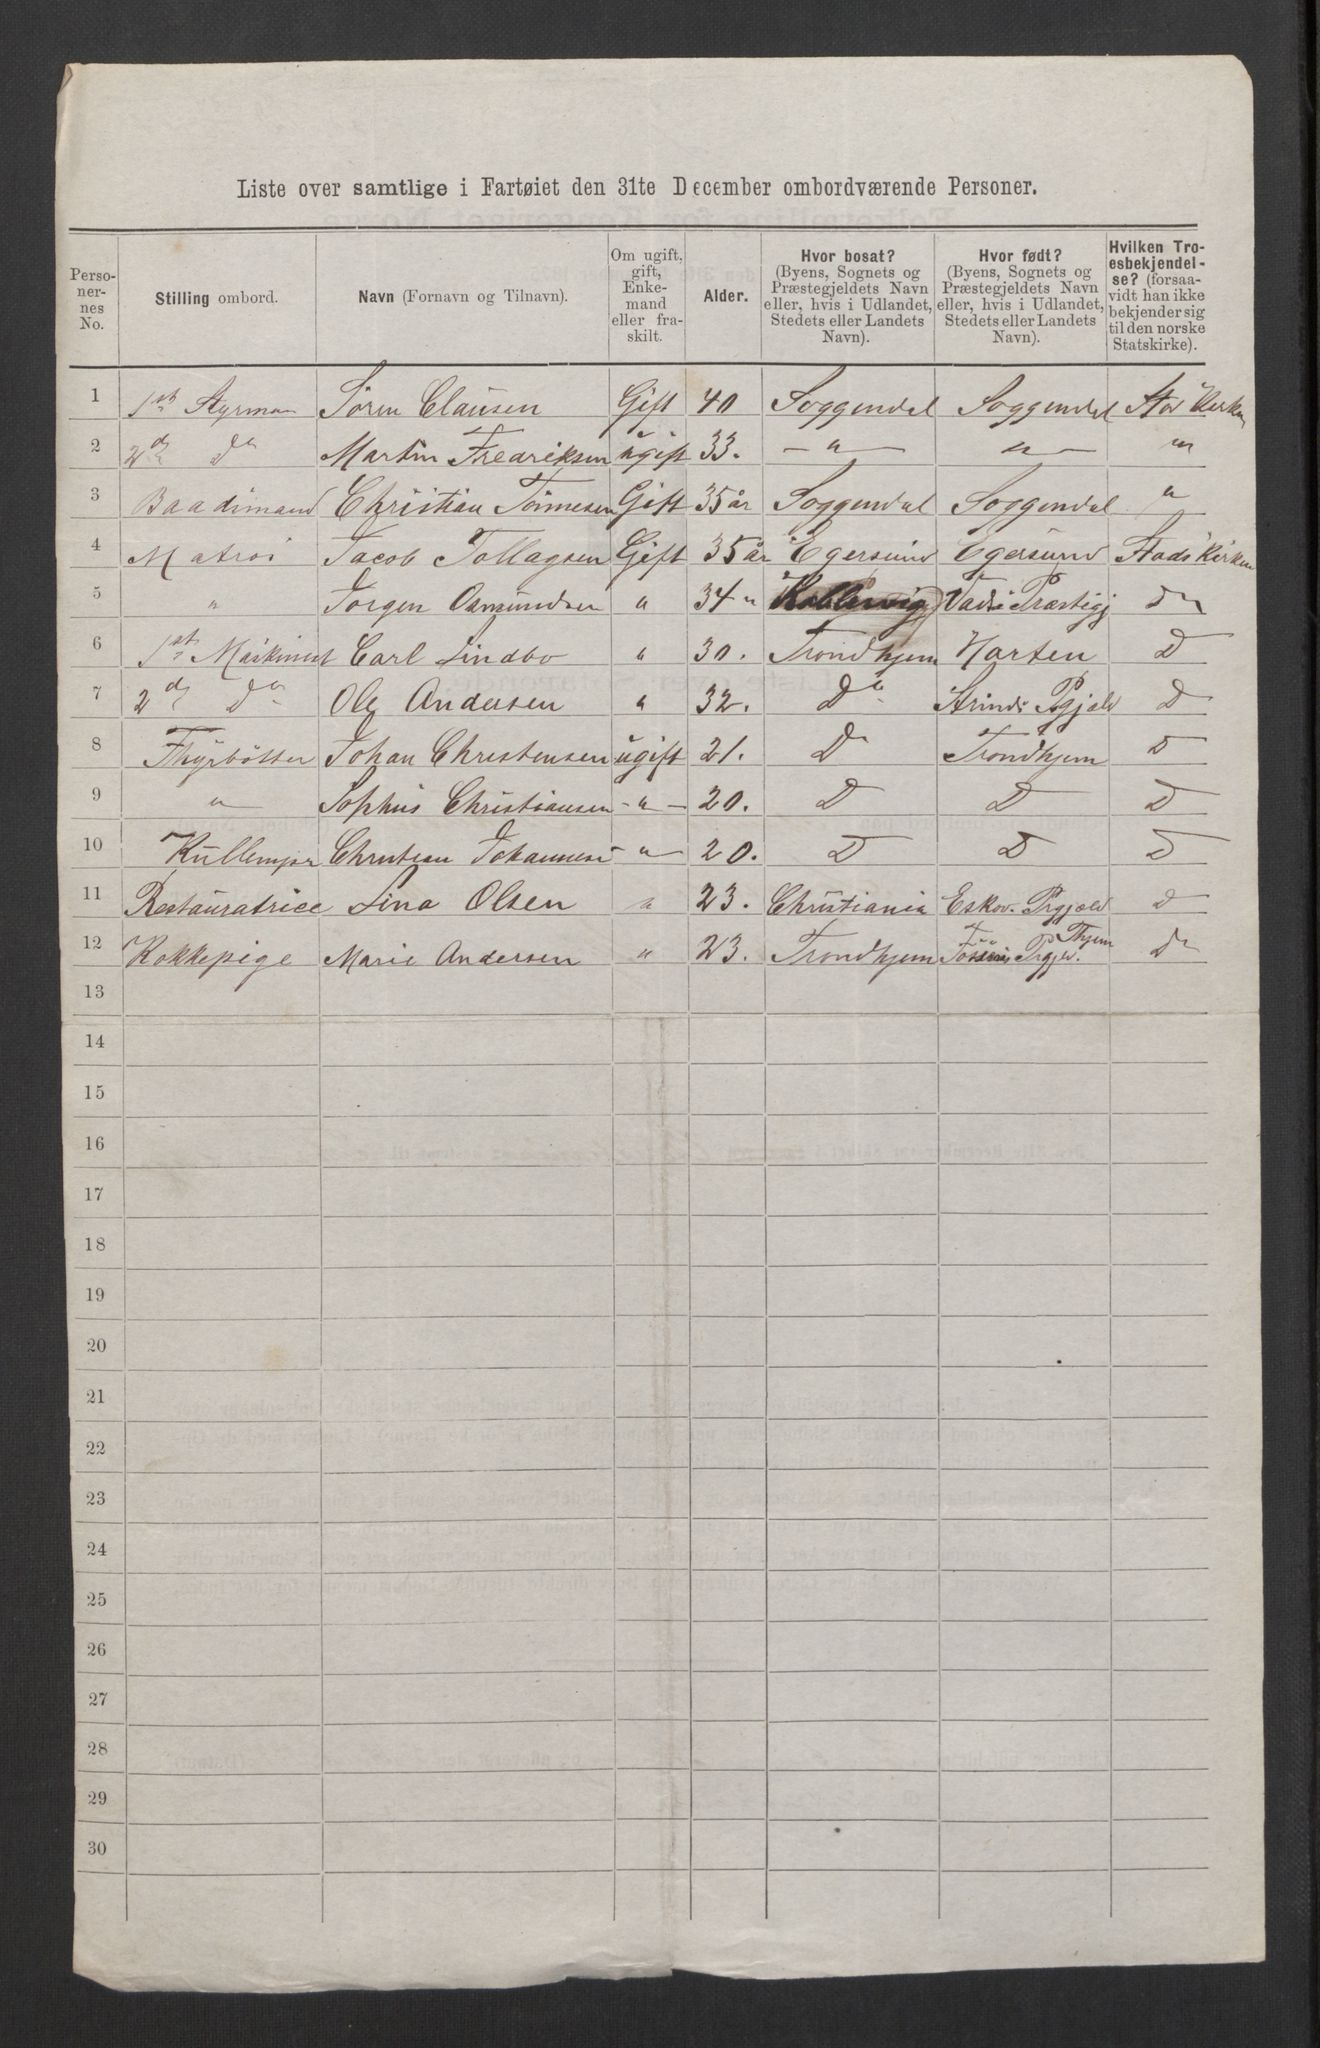 Liste over samtlige i Fartøiet den 31te December ombordværende Personer.
Perso-
ner-
nes
No.
Stilling ombord.
Navn (Fornavn og Tilnavn).
Om ugift,
gift,
Enke-
mand
eller fra-
skilt.
Alder.
Hvor bosat?
(Byens, Sognets og
Præstegjeldets Navn
eller, hvis i Udlandet,
Stedets eller Landets
Navn).
Hvor født?
(Byens, Sognets og
Præstegjeldets Navn
eller, hvis i Udlandet,
Stedets eller Landets
Navn).
Hvilken Tro-
esbekjendel-
se? (forsaa-
vidt han ikke
bekjender sig
til den norske
Statskirke).
1 1st Styrman Sören Clausen Gift 40 Soggendal Soggendal Kirken
2 2d Do Martin Fredriksen ugift 33. — " — — " — "
3 Baadsmand Christian Tönnesen Gift 35 år Soggendal Soggendal "
4 Matros Jacob Tollagsen Gift 35 år Egersund Egersund Stads Kirken
5 " Jörgen Asmundsen " 34 " Do
6 1st Maskinist Carl Lindbo " 30. Trondhjem Horten D
7 2d Do Ole Andersen " 32. Do Strinds Pgjeld D
8 Fhyrbötter Johan Christensen ugift 21. D Trondhjem D
9 " Sophus Christiansen - " - 20. D D D
10 Kullemper Christian " 20. D D D
11 Restauratrice Lina Olsen " 23. Christiania Eskov. Prgjeld D
12 Kokkepige Marie Andersen " 23. Trondhjem Prgjeld. Thjem Do
13
14
15
16
17
18
19
20
21
22
23
24
25
26
27
28
29
30